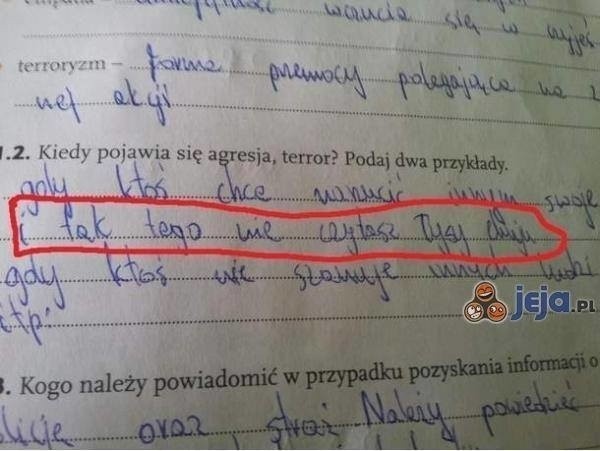 wczucia się w czyjeś
terroryzm – forma przemocy polegająca na z
nej akcji
1.2. Kiedy pojawia się agresja, terror? Podaj dwa przykłady.
gdy ktoś chce narzucić innym swoje
i tak tego nie czytasz łysy
gdy ktoś nie szanuje innych ludzi
itp.
jeja.PL
3. Kogo należy powiadomić w przypadku pozyskania informacji o
licję oraz straż Należy powiedzieć